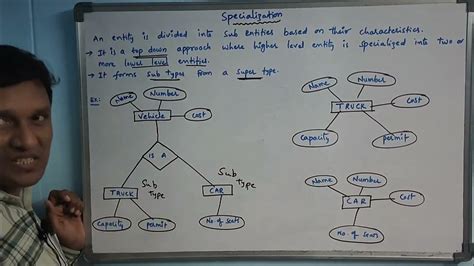 Specialization
An entity is divided into sub entities based on their characteristics.
→ It is a top down approach where higher level entity is specialized into two or
more lower level entities.
→ It forms sub types from a super type.
Ex:
Name
Number
Vehicle
Cost
IS A
TRUCK
Sub
Type
CAR
Sub
Type
Capacity
permit
No. of seats
Name
Number
TRUCK
Cost
Capacity
permit
Name
Number
CAR
Cost
No. of seats